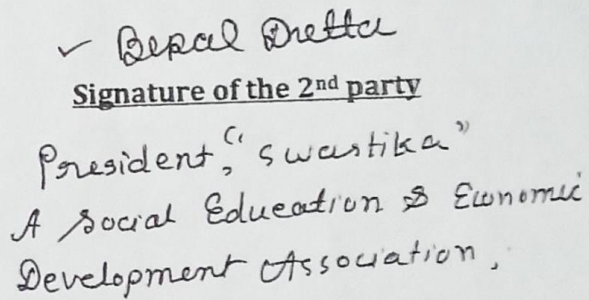 ✓ Bepal Dretta
Signature of the 2nd party
President, "Swastika"
A Social Education & Economic
Development Association,